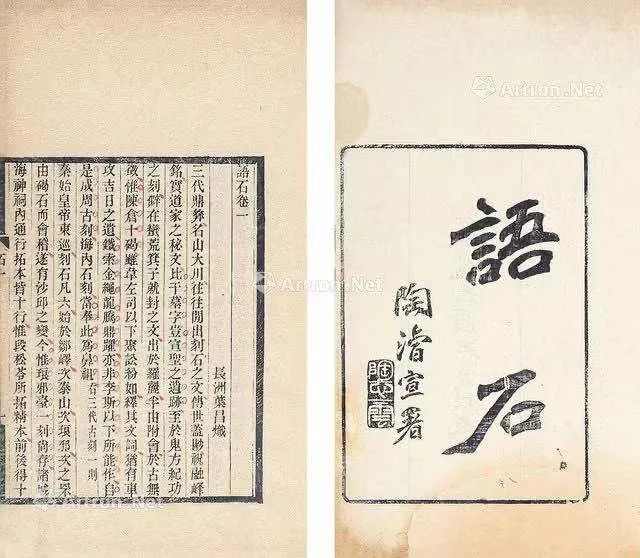 語石
陶濬宣署
陶心雲
語石卷一
長洲葉昌熾
三代鼎彝名山大川往往閒出刻石之文傳世蓋尟祝融峰
銘實道家之秘文比干墓字豈宣聖之遺跡至於鬼方紀功
之刻辟在蠻荒箕子就封之文出於羅麗半由附會於古無
徵惟陳倉十碣雖韋左司以下聚訟紛如繹其文詞猶有車
攻吉日之遺鐵索金繩龍騰鼎躍亦非李斯以下所能作自
是成周古刻海內石刻當奉此為鼻祖右三代古刻一則
秦始皇帝東巡刻石凡六始於鄒嶧次泰山次琅邪次之罘
由碣石而會稽遂有沙邱之變今惟琅邪臺一刻尚存諸城
海神祠內通行拓本皆十行惟段松苓所拓精本前後得十
Artron.Net
Artron.Net